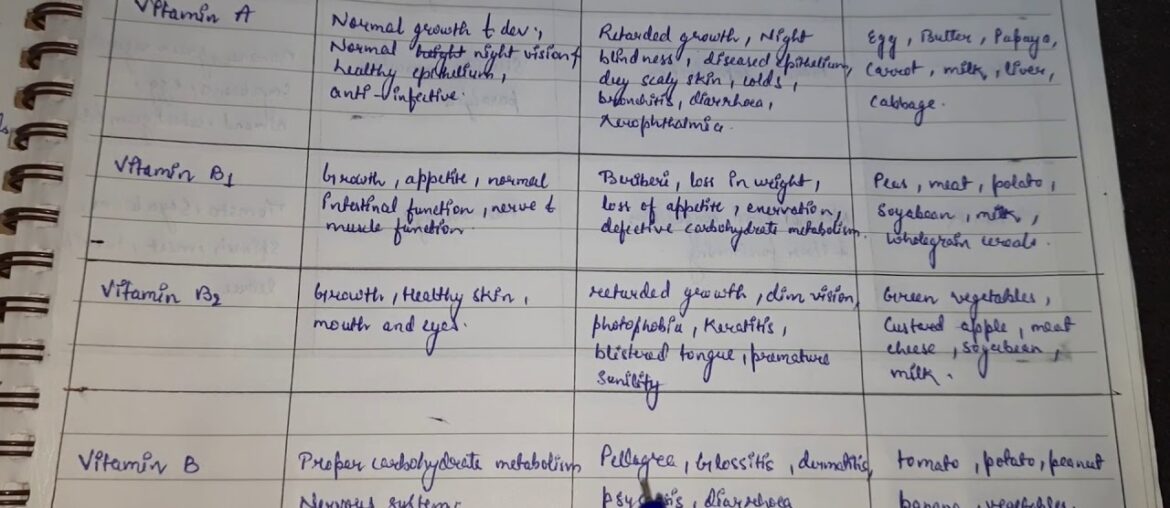 Vitamin A
Normal growth & dev.,
Normal night vision,
healthy epithelium,
anti-infective.
Retarded growth, Night
blindness, diseased epithelium,
dry scaly skin, colds,
bronchitis, diarrhoea,
Xerophthalmia.
Egg, Butter, Papaya,
Carrot, milk, liver,
Cabbage.
Vitamin B1
Growth, appetite, normal
Intestinal function, nerve &
muscle function.
Beriberi, loss in weight,
loss of appetite, enervation,
defective carbohydrate metabolism.
Peas, meat, potato,
Soyabean, milk,
Wholegrain cereals.
Vitamin B2
Growth, Healthy skin,
mouth and eyes.
retarded growth, dim vision,
photophobia, Keratitis,
blistered tongue, premature
Sunility
Green vegetables,
Custered apple, meat
cheese, Soyabean,
milk.
Vitamin B
Proper carbohydrate metabolism
Nervous system.
Pellagra, Glossitis, dermatitis,
diarrhoea
tomato, potato, peanut
banana, vegetables